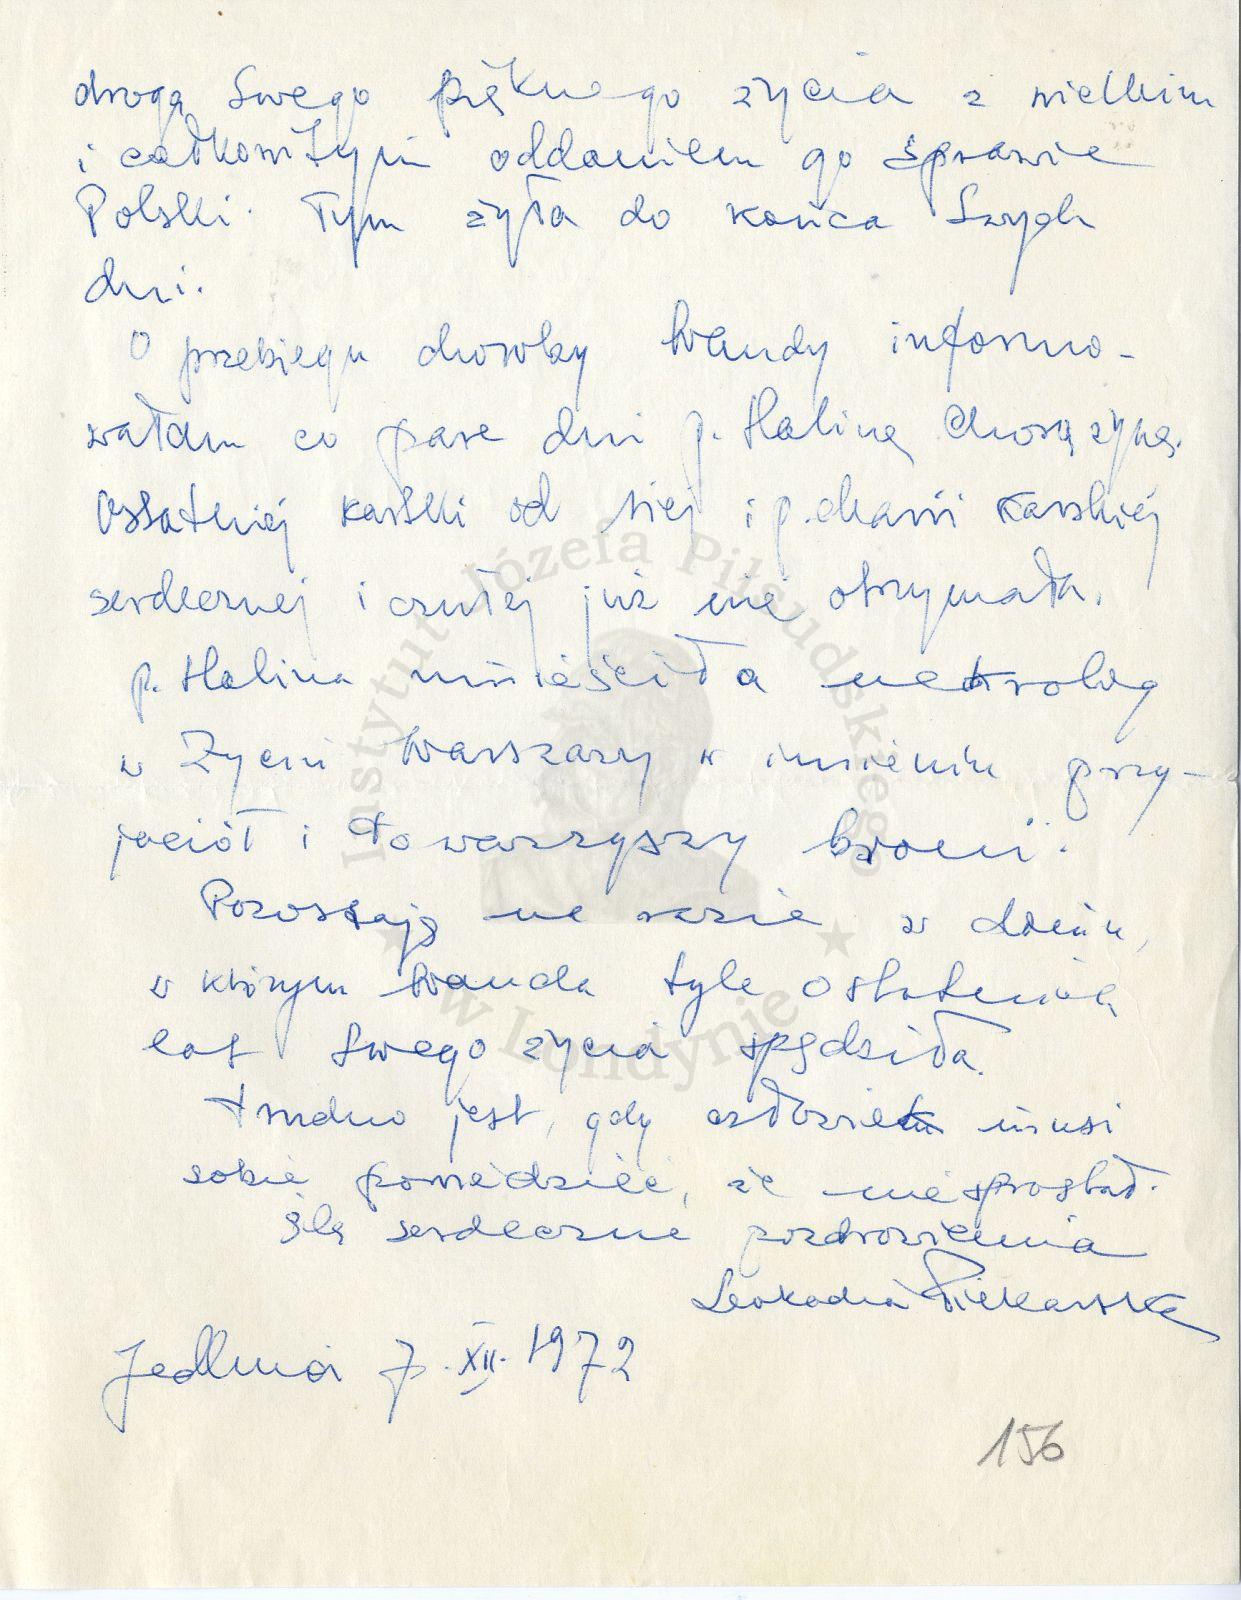 drogą Swego pięknego życia z wielkim
i całkowitym oddaniem go sprawie
Polski. Tym żyła do końca Swych
dni.
O przebiegu choroby Wandy informo-
wałam co parę dni p. Halinę Chorążynę.
Ostatniej kartki od niej i p. Karskiej
serdecznej i czułej już nie otrzymała.
p. Halina umieściła nekrolog
w Życiu Warszawy w imieniu przy-
jaciół i towarzyszy broni.
Pozostaję na razie w domu,
w którym Wanda tyle ostatnich
lat Swego życia spędziła.
Trudno jest, gdy człowiek musi
sobie powiedzieć, że nie sprostał.
Ślę serdeczne pozdrowienia
Leokadia Piekarska
Jedlnia 7.XII.1972
156
Instytut Józefa Piłsudskiego
w Londynie